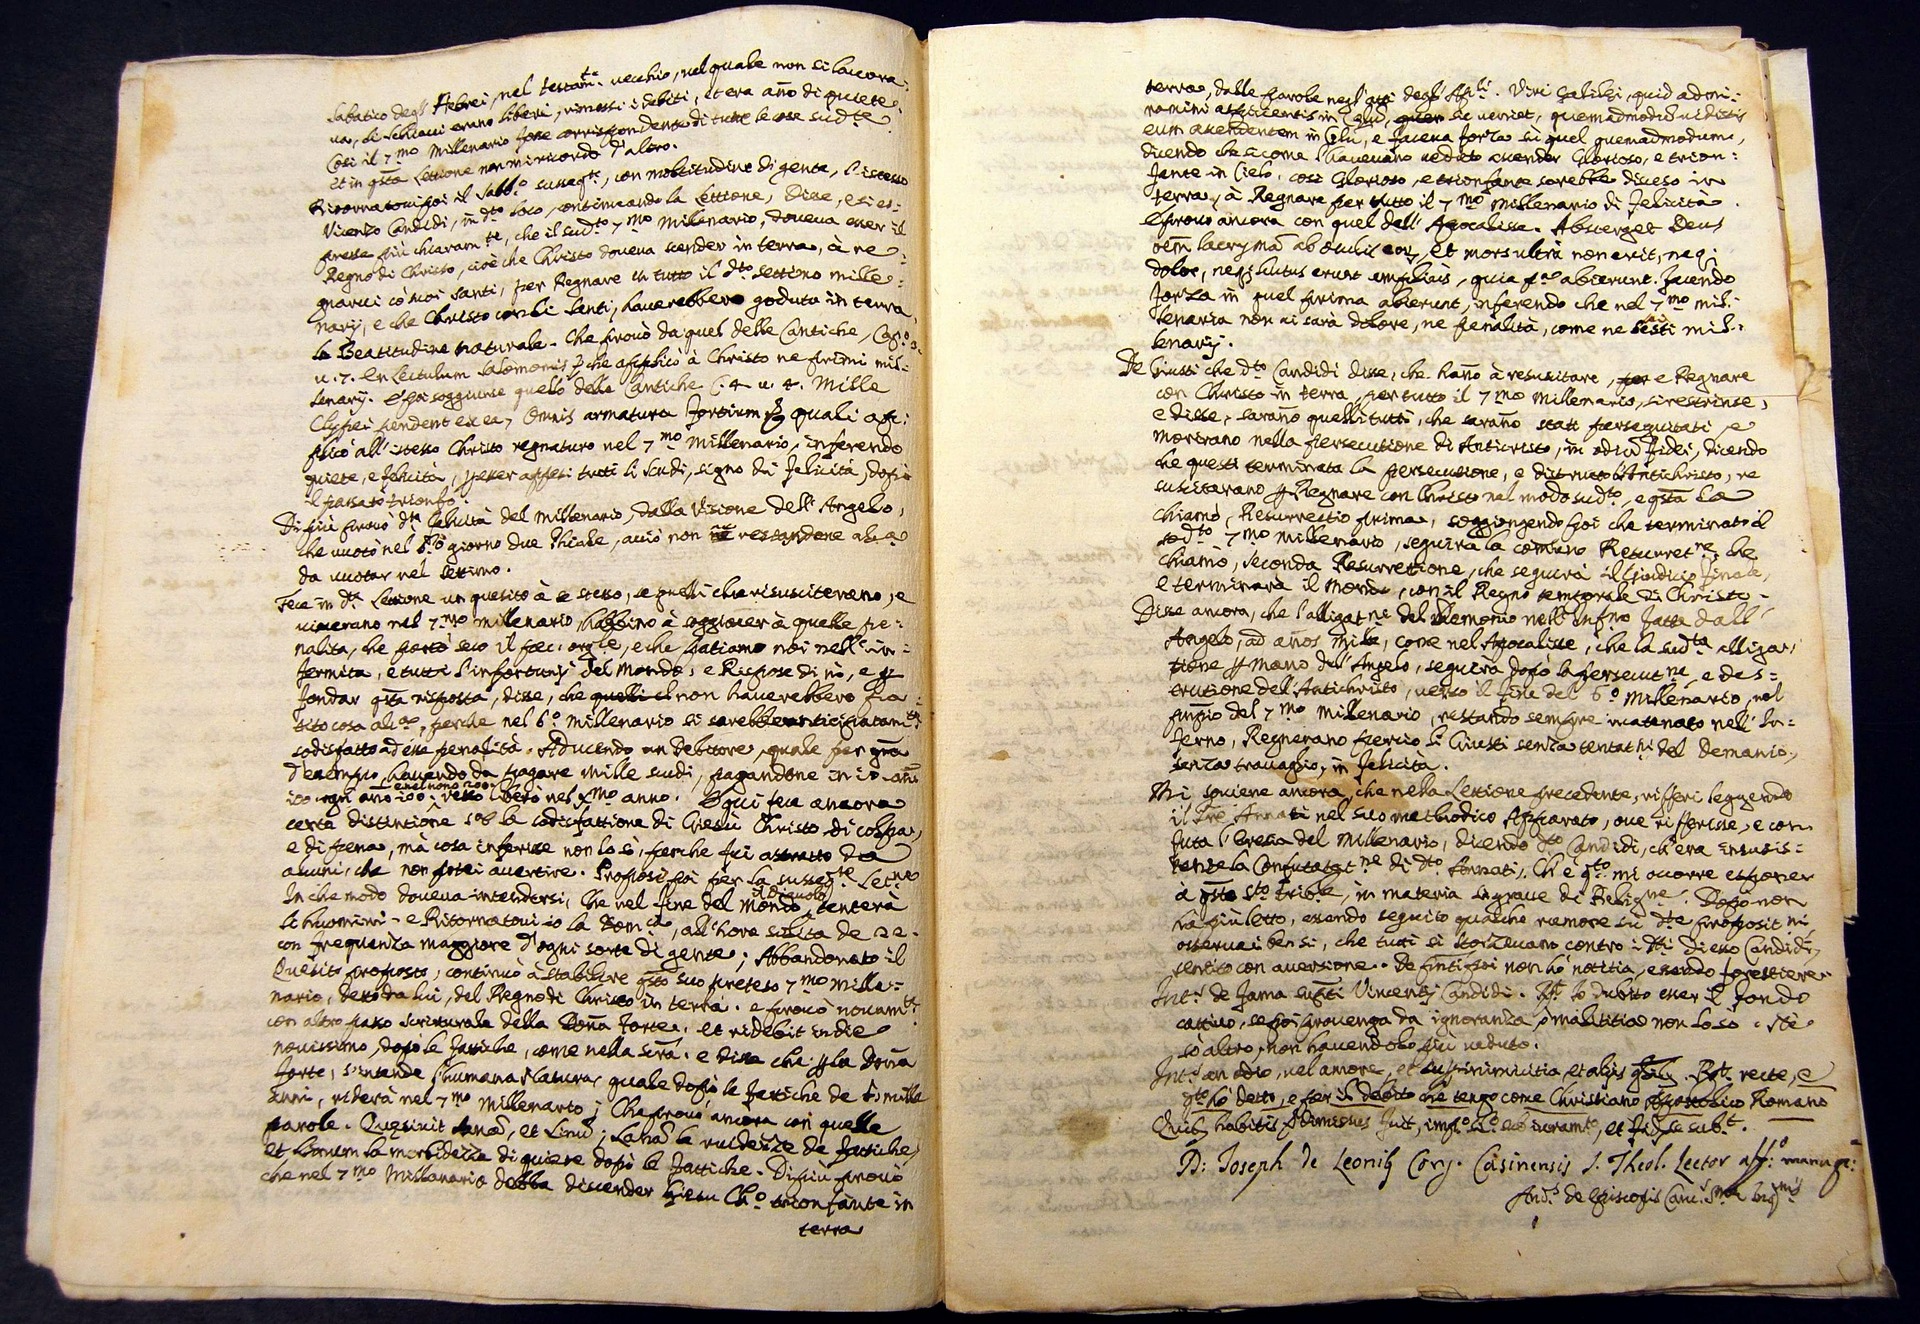 Sabatico degl' Hebrei, nel testam.te vecchio, nel quale non si lavora-
va, li schiavi erano liberi, rimessi i debiti, et era año di quiete,
Così il 7.mo Millenario fosse corrispondente di tutte le cose sud.te
et in qsta Lettione non mi ricordo d'altro.
Ritornatovi poi il Sabb.o susseg.te, con moltitudine di gente, l'istesso
Vicenzo Candidi, in d.to loco, continuando la Lettione, Disse, e si es-
presse più chiaram.te, che il sud.to 7.mo Millenario, doveva esser il
Regno di Christo, cioè che Christo doveva scender in terra, à re-
gnarvi cò suoi Santi, per Regnare in tutto il d.to settimo mille-
nary, e che Christo con li Santi, haverebbero goduta in terra
la Beatitudine naturale. Che provò da quel delle Cantiche, Cap.o 3.
u. 7. En Lectulum Salomonis che applicò à Christo ne primi mil-
lenarij. E poi soggiunse quello della Cantiche C. 4. u. 4. Mille
Clypei pendent ex ea, Omnis armatura fortium quali ap-
plicò all'istesso Christo regnaturo nel 7.mo Millenario, inferendo
quiete, e felicità, appesi tutti li scudi, segno di felicità, dopò
il passato trionfo.
Di più provò d.ta felicità del Millenario, dalla Visione dell'Angelo,
che vuotò nel 6.to giorno due Phiale, acciò non restandone altra
da vuotar nel settimo.
Fece in d.ta Lettione un quesito à se stesso, se quelli che risusciteranno, e
viverano nel 7.mo millenario, habbino à soggiacer à quelle pe-
nalità, che portò seco il pecc. orig.le, e che patiamo noi nell'in-
fermità, e tutti l'infortunij del Mondo, e Rispose di nò, e
fondar qsta risposta, disse, che quelli non haverebbero pa-
tito cosa alc.a, perche nel 6.o Millenario si sarebbe anticipatam.te
sodisfatto ad esse penalità. Aducendo un Debitore, quale per
d'esempio, havendo da pagare mille scudi, pagandone in
ogni año 100, e nel nono 200, resta libero nel x.mo anno. E qui fece ancora
certa distintione sob.e la sodisfattione di Giesù Christo di colpa,
e di pena, mà cosa inferisse non lo sò, perche fui astratto da
alcuni, che non potei avertire. Propose poi per la susseg.te Let.ne
In che modo doveva intendersi, che nel fine del mondo, il Dianolo tenterà
le huomini. e Ritornatovi io la Dom.ca, all'hore solita de 22.
con frequenza maggiore d'ogni sorte di gente; Abbandonato il
Quesito proposto, continuò à stabilire qsto suo preteso 7.mo Mille-
nario, detto da lui, del Regno di Christo in terra. e provò novam.te
con altro passo scritturale della Doña forte, et ridebit in die
novissimo, dopo le fattiche, come nella scrã. e disse che la Doña
forte, s'intende l'humana Natura, quale dopò le fattiche de 6. milla
anni, riderà nel 7.mo Millenario; Che provò ancora con quelle
parole. Quesivit lanã, et Linũ; La lanã le ruidezze de fattiche,
et Linum la morbidezza di quiete dopò le fattiche. Di più provò
che nel 7.mo Millenario debba discender Giesu Ch.o trionfante in
terra
terra, dalle parole negl'atti degl'Ap.li. Viri Galilęi, quid admi-
ramini aspicientis in Cęlũ, sic veniet, quemadmodũ vidistis
eum ascendentem in Cęlũ, e faceva forza sù quel quemadmodum,
dicendo che sicome l'havevano veduto ascender Glorioso, e trion-
fante in Cielo, così Glorioso, e trionfante sarebbe disceso in
terra, à Regnare per tutto il 7.mo Millenario di felicità.
E provò ancora con quel dell'Apocalisse. Absterget Deus
oẽm lacrymã ab oculis eor, et mors ultrà non erit, neq;
dolor, neq; luctus erunt amplius, quia p.a abierunt. facendo
forza in quel prima abierunt, inferendo che nel 7.mo mil-
lenario non ci sarà dolore, ne penalità, come ne sesti mil-
lenarij.
De Giusti che d.to Candidi disse, che hano à resuscitare, e Regnare
con Christo in terra, per tutto il 7.mo Millenario, si restrinse,
e disse, sarano quelli tutti, che sarano stati perseguitati, e
morirano nella persecutione di Anticristo, in odiũ fidei, dicendo
che questi terminata la persecutione, e distrutto l'Antichristo, re
suscitarano Regnare con Christo nel modo sud.to, e qsta la
chiamò, Resurrectio prima, soggiongendo poi che terminato il
sod.to 7.mo millenario, seguirà la comune Resurret.ne, che
chiamò, seconda Resurrettione, che seguirà il Giudicio finale,
e terminarà il Mondo, con il Regno temporale di Christo.
Disse ancora, che l'alligat.ne del Demonio nell'Infno fatta dall'
Angelo, ad años mille, come nel Apocalisse, che la sud.ta alliga-
tione mano dell'Angelo, seguirà dopò la persecut.ne, e des-
trutione dell'Antichristo, verso il fine del 6.o Millenario, nel
prinpio del 7.mo Millenario, restando sempre incatenato nell'In-
ferno, Regnerano perciò li Giusti senza tentat.ni del Demonio,
senza travaglio, in felicità.
Mi soviene ancora, che nella Lettione precedente, rifferì leggendo
il Pre Annati nel suo methodico Apparato, ove rifferisce, e con-
futa l'heresia del Millenario, dicendo d.to Candidi, ch'era insusis-
tente la Confutat.ne di d.to Annati, Ch'è q.to mi occorre esponer
à qsto S.to Trible, in materia sì grave di Relig.ne. Dopo non
hà più letto, essendo seguito qualche rumore sù d.te proposit.ni
osservai ben si, che tutti si storcevano contro i d.ti di esso Candidi,
sentito con aversione. De finti poi non hò notitia, essendo forestiere.
Int.s de fama supti Vincentij Candidi. R.t Io dubito esser il fondo
cattivo, se poi provenga da ignoranza, ò malitia non lo sò. Ne
sò altro, non havendolo più veduto.
Int.s an odio, vel amore, et inimicitia et alijs R.t. recte, e
q.to hò detto, e per il debito che tengo come Christiano Apostolico Romano
Quib; habitis dimissus fuit, iuramto, et
D: Joseph de Leonib; Cong. Casinensis S. Theol. Lector aff.o manu pp: